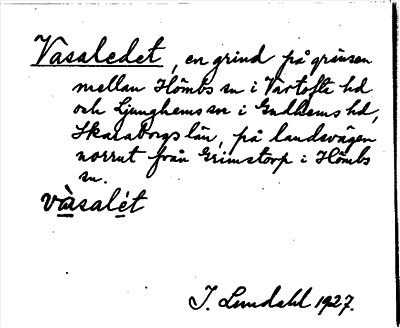 Vasaledet, en grind på gränsen
mellan Hömbs sn i Vartofta hd
och Ljunghems sn i Gudhems hd,
Skaraborgs län, på landsvägen
norrut från Grimstorp i Hömbs
sn.
vàsalét
I. Lundahl 1927.